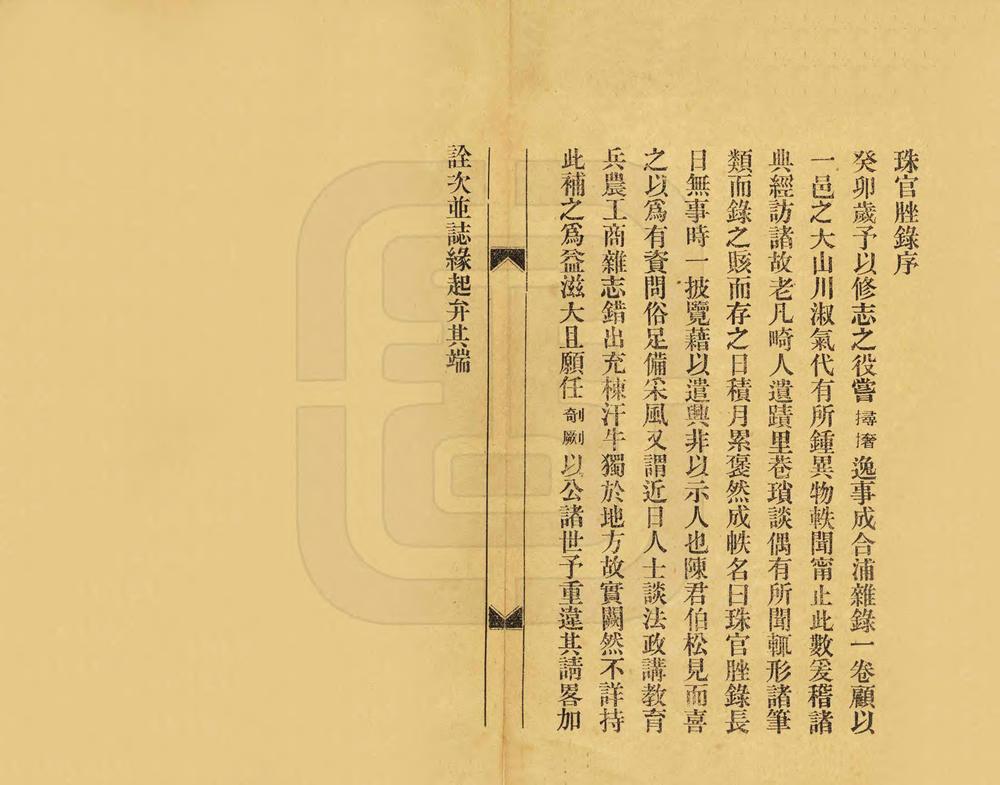 珠官脞錄序
癸卯歲予以修志之役嘗撏撦逸事成合浦雜錄一卷顧以
一邑之大山川淑氣代有所鍾異物軼聞甯止此數爰稽諸
典經訪諸故老凡畸人遺蹟里巷瑣談偶有所聞輒形諸筆
類而錄之賅而存之日積月累褎然成帙名曰珠官脞錄長
日無事時一披覽藉以遣興非以示人也陳君伯松見而喜
之以爲有資問俗足備采風又謂近日人士談法政講教育
兵農工商雜志錯出充棟汗牛獨於地方故實闕然不詳持
此補之爲益滋大且願任剞劂以公諸世予重違其請畧加
詮次並誌緣起弁其端